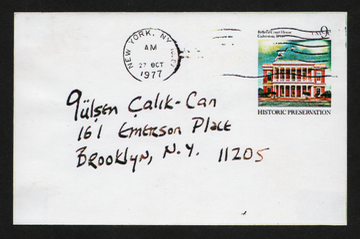 NEW YORK, NY
AM
27 OCT
1977
HISTORIC PRESERVATION
Gülsen Çalik-Can
161 Emerson Place
Brooklyn, N.Y. 11205